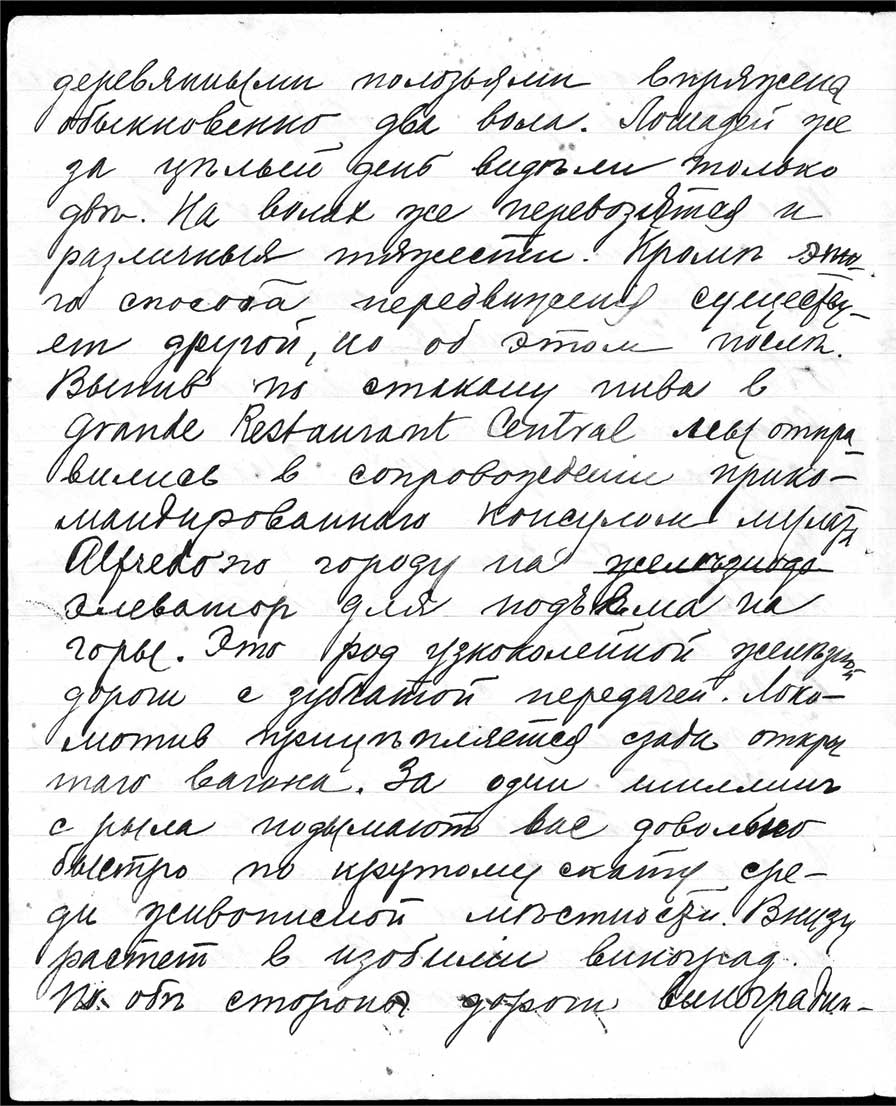 деревянными полозьями впряжены
обыкновенно два вола. Лошадей же
за цѣлый день видѣли только
двѣ. На волах же перевозятся и
различныя тяжести. Кромѣ это-
го способа передвиженія существу-
ет другой, но об этом послѣ.
Выпив по стакану пива в
Grande Restaurant Central мы отпра-
вились в сопровожденіи прико-
мандированнаго консулом мулата
Alfredo по городу на желѣзнодо
элеватор для подъема на
горы. Это род узкоколейной желѣзной
дороги с зубчатой передачей. Локо-
мотив прицѣпляется сзади откры
таго вагона. За один шиллинг
с рыла подымают вас довольно
быстро по крутому скату сре-
ди живописной мѣстности. Внизу
растет в изобиліи виноград.
По обѣ стороны дороги виноградни-